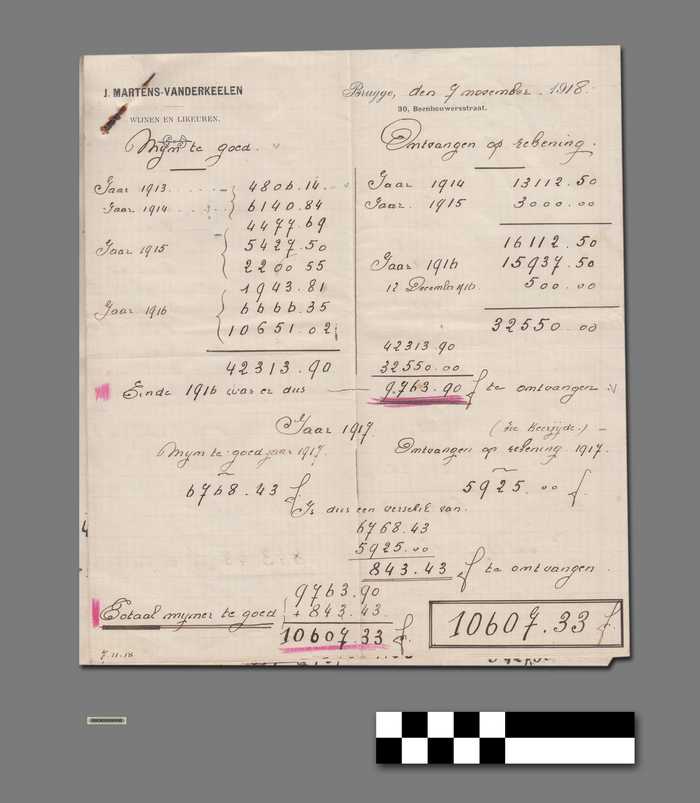 J. MARTENS-VANDERKEELEN
WIJNEN EN LIKEUREN.
Brugge, den 7 november 1918.
30, Beenhouwersstraat.
Mijn te goed.
Jaar 1913 4806.14
Jaar 1914 6140.84
4477.69
Jaar 1915 5427.50
2200 55
1943.81
Jaar 1916 6666.35
10651.02
42313.90
Ontvangen op rekening.
Jaar 1914 13112.50
Jaar 1915 3000.00
16112.50
Jaar 1916 15937.50
12 December 1916 500.00
32550.00
42313.90
32550.00
Einde 1916 was er dus 9763.90 f te ontvangen
Jaar 1917.
(Zie Keerzijde.)
Mijn te goed jaar 1917.
6768.43 f.
Ontvangen op rekening 1917.
5925.00 f.
Is dus een verschil van.
6768.43
5925.00
843.43 f te ontvangen.
9763.90
+ 843.43
Totaal mijner te goed 10607.33 f.
10607.33 f.
7.11.18